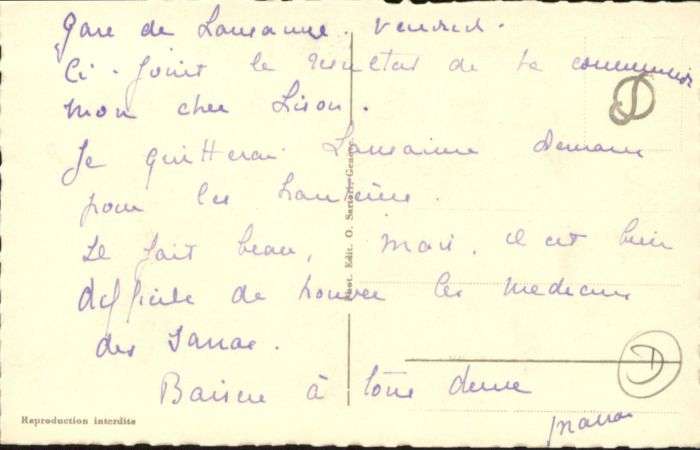 Gare de Lausanne. Vendredi.
Ci-joint le résultat de ta commission
mon cher Lison.
Je quitterai Lausanne demain
pour les
Il fait beau, mais, il est bien
difficile de trouver les médecins
des sanas.
Baisers à tous deux
D
D
Phot. Edit. O. Sartori, Genève
Reproduction interdite